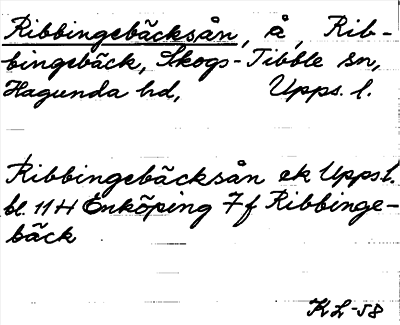 Ribbingebäcksån, å, Rib-
bingebäck, Skogs-Tibble sn,
Hagunda hd, Upps. l.
Ribbingebäcksån ek Upps l.
bl. 11H Enköping 7f Ribbinge-
bäck
KL-58